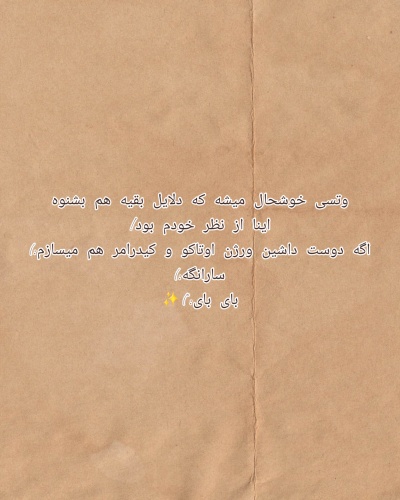 وتسی خوشحال میشه که دلایل بقیه هم بشنوه
اینا از نظر خودم بود/
اگه دوست داشین ورژن اوتاکو و کیدرامر هم میسازم./
سارانگه./
بای بای./ ✨